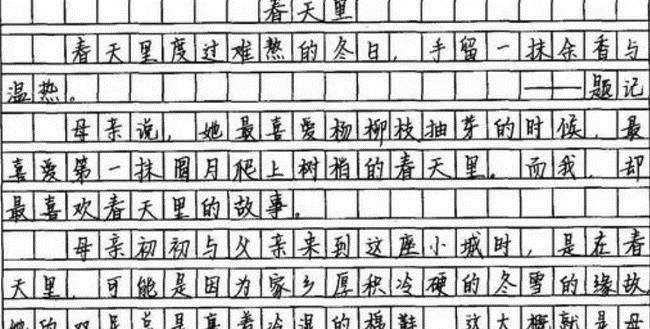 春天里
春天里度过难熬的冬日，手留一抹余香与
温热。——题记
母亲说，她最喜爱杨柳枝抽芽的时候，最
喜爱第一抹眉月爬上树梢的春天里。而我，却
最喜欢春天里的故事。
母亲初初与父亲来到这座小城时，是在春
天里，可能是因为家乡厚积冷硬的冬雪的缘故，
她的双足总是裹着冷湿的棉鞋，这大概就是母